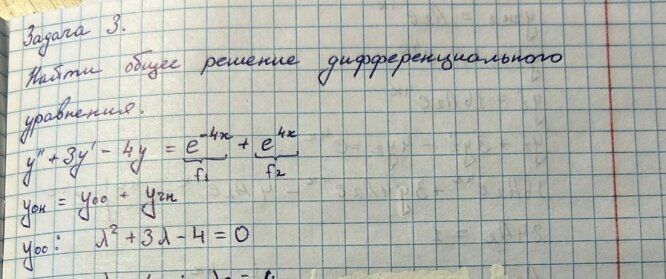 Задача 3.
Найти общее решение дифференциального
уравнения.
y'' + 3y' - 4y = e^{-4x} + e^{4x}
f₁ f₂
y_{он} = y_{оо} + y_{чн}
y_{оо}: λ² + 3λ - 4 = 0